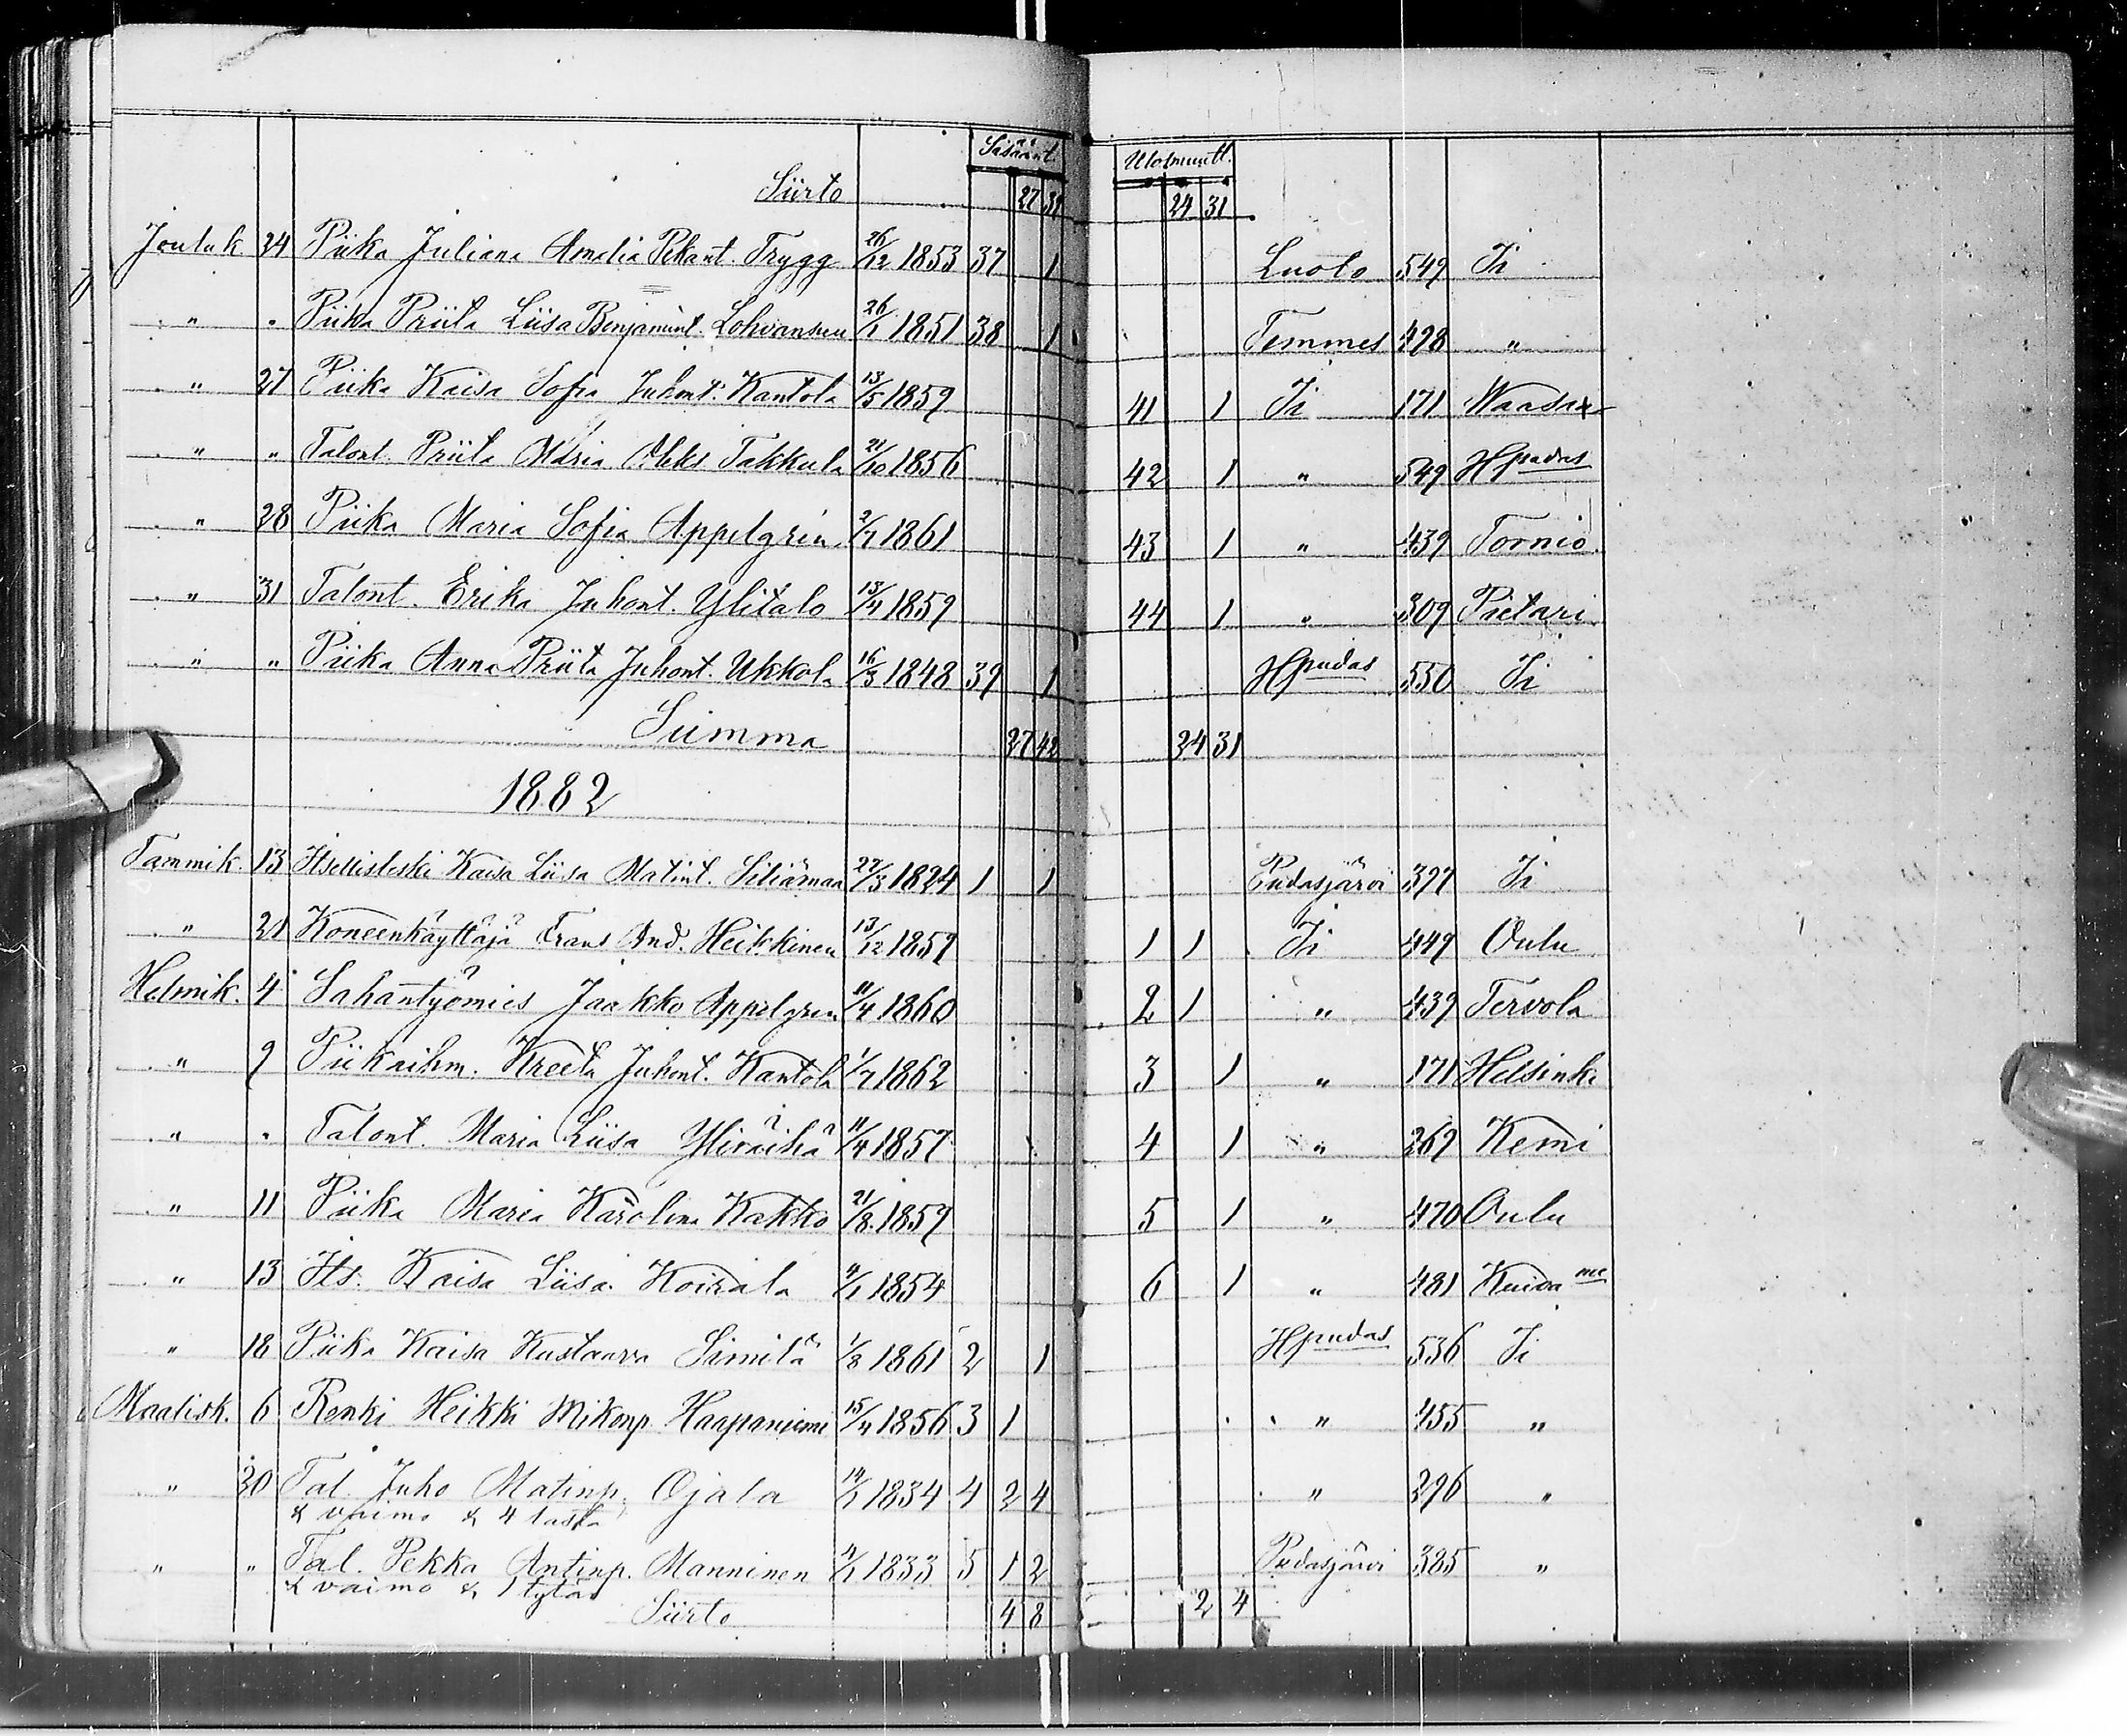 Sisäänt. Ulosmuutt.
Siirto 27 39 24 31
Jouluk. 24 Piika Juliana Amalia Pekant. Trygg 26/12 1853 37 1 Luoto 549 Ii
" " Piika Priita Liisa Benjamint. Lohvansuu 26/1 1851 38 1 Temmes 498 "
" 27 Piika Kaisa Sofia Juhont. Kantola 13/5 1859 41 1 Ii 171 Waasa
" " Talont. Priita Maria Aleks. Takkula 21/10 1856 42 1 " 549 Hpudas
" 28 Piika Maria Sofia Appelgrén 2/7 1861 43 1 " 439 Tornio
" 31 Talont. Erika Juhont. Ylitalo 13/4 1859 44 1 " 309 Pietari
" " Piika Anna Priita Juhont. Ukkola 16/3 1848 39 1 Hpudas 550 Ii
Summa 27 42 24 31
1882
Tammik. 13 Itsellisleski Kaisa Liisa Matint. Siliämaa 27/3 1824 1 1 Pudasjärvi 397 Ii
" 21 Koneenkäyttäjä Frans And. Heikkinen 13/12 1859 1 1 Ii 449 Oulu
Helmik. 4 Sahantyömies Jaakko Appelgren 11/4 1860 2 1 " 439 Tervola
" 9 Piikaihm. Kreeta Juhont. Kantola 1/7 1862 3 1 " 171 Helsinki
" " Talont. Maria Liisa Yliräihä 11/4 1857 4 1 " 269 Kemi
" 11 Piika Maria Karolina Kakko 21/8 1859 5 1 " 470 Oulu
" 13 Its. Kaisa Liisa Koirala 4/1 1854 6 1 " 481 Kuiva nie
" 18 Piika Kaisa Kustaava Similä 1/8 1861 2 1 Hpudas 536 Ii
Maalisk. 6 Renki Heikki Mikonp. Haapaniemi 15/4 1856 3 1 " 455 "
" 20 Tal. Juho Matinp. Ojala 14/1 1834 4 2 4 " 296 "
& vaimo & 4 lasta
" " Tal. Pekka Antinp. Manninen 4/1 1833 5 1 2 Pudasjärvi 385 "
& vaimo & 1 tytär
Siirto 4 8 2 4